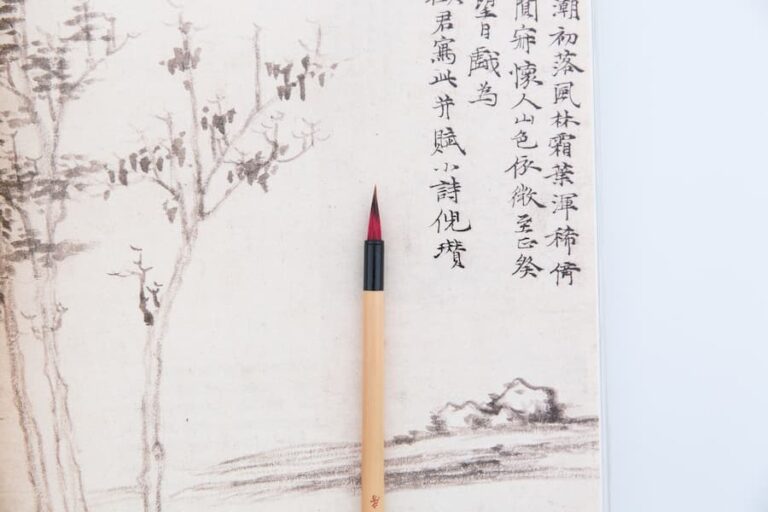 潮初落風林霜葉渾稀倚
闃寂懷人山色依微至正癸
望日戲為
君寫此并賦小詩倪瓚